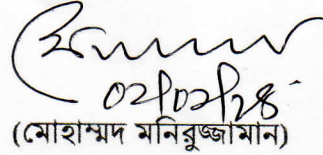 ০২/০২/২৪
(মোহাম্মদ মনিরুজ্জামান)